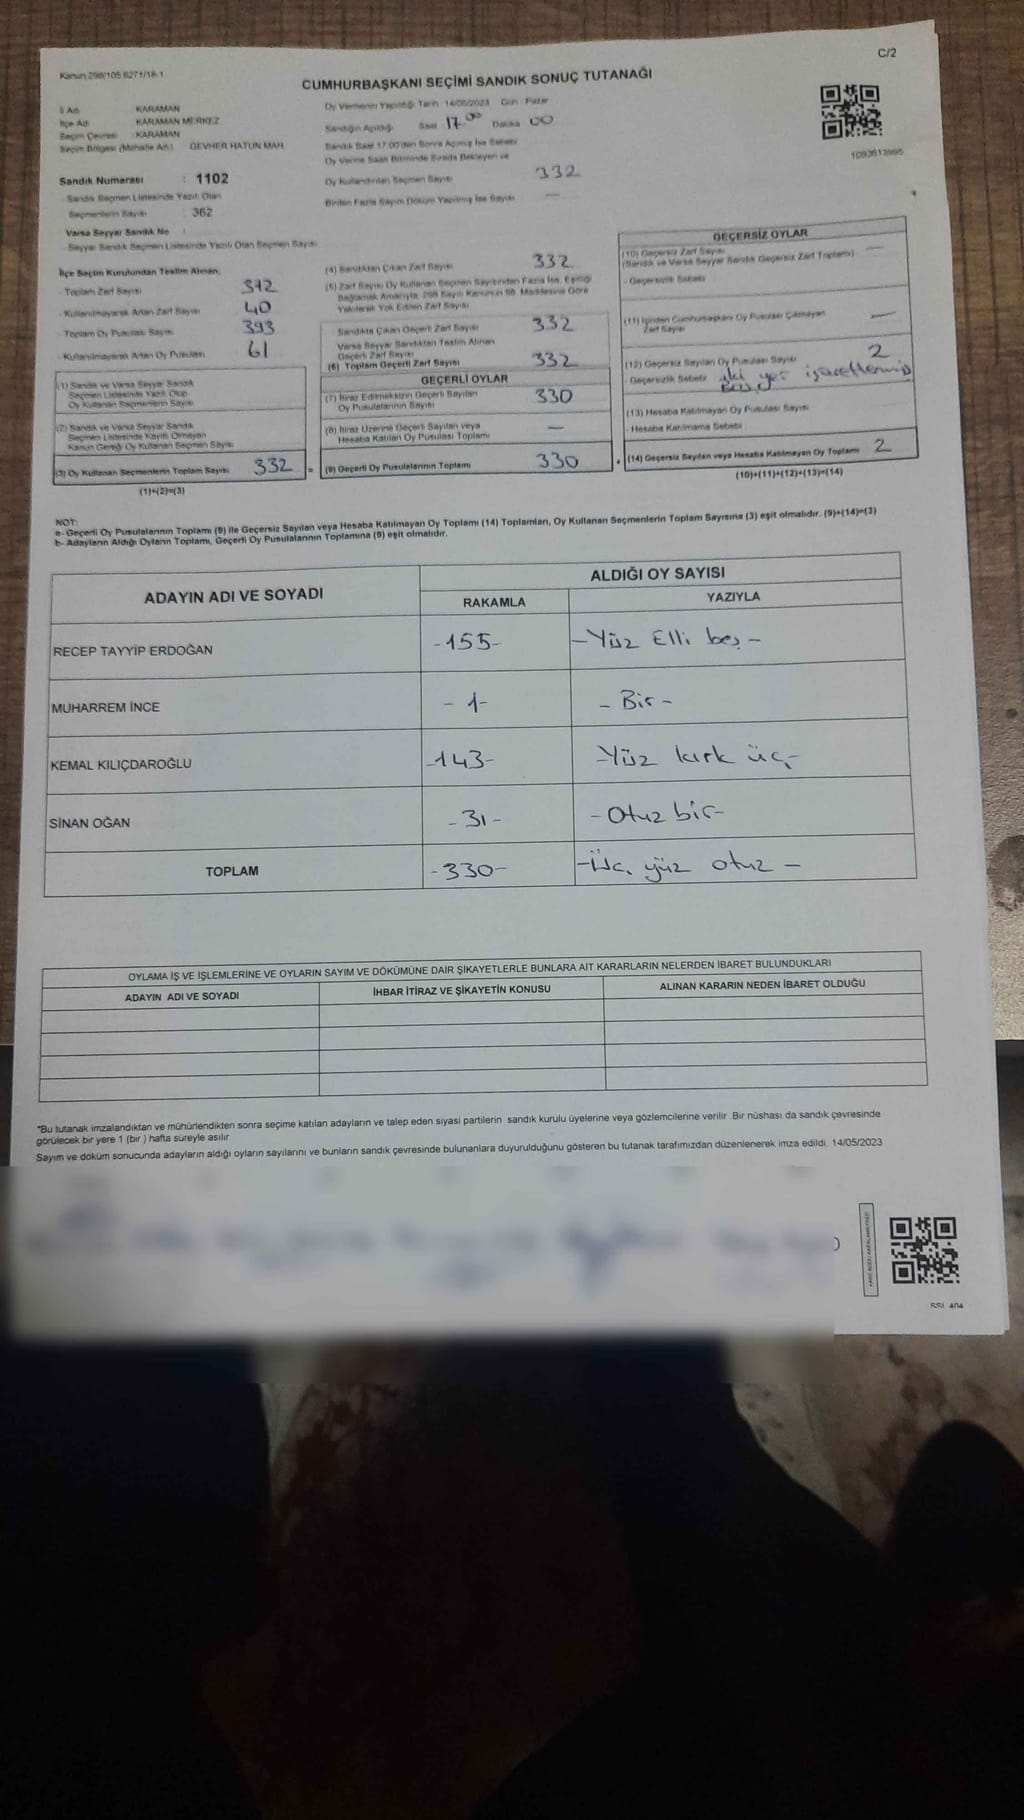 C/2
Kanun 298/105 6271/18-1
CUMHURBAŞKANI SEÇİMİ SANDIK SONUÇ TUTANAĞI
İl Adı KARAMAN
İlçe Adı KARAMAN MERKEZ
Seçim Çevresi KARAMAN
Seçim Bölgesi (Mahalle Adı) GEVHER HATUN MAH
Oy Vermenin Yapıldığı Tarih 14/05/2023 Gün Pazar
Sandığın Açıldığı Saat 17.00 Dakika 00
Sandık Saat 17:00'den Sonra Açılmış İse Sebebi
Oy Verme Saati Bitiminde Sırada Bekleyen ve
Oy Kullandırılan Seçmen Sayısı 332
Birden Fazla Sayım Döküm Yapılmış İse Sayısı —
1093613995
Sandık Numarası : 1102
- Sandık Seçmen Listesinde Yazılı Olan
Seçmenlerin Sayısı : 362
Varsa Seyyar Sandık No :
- Seyyar Sandık Seçmen Listesinde Yazılı Olan Seçmen Sayısı
İlçe Seçim Kurulundan Teslim Alınan;
- Toplam Zarf Sayısı 372
- Kullanılmayarak Artan Zarf Sayısı 40
- Toplam Oy Pusulası Sayısı 393
- Kullanılmayarak Artan Oy Pusulası 61
(1) Sandık ve Varsa Seyyar Sandık
Seçmen Listesinde Yazılı Olup
Oy Kullanan Seçmenlerin Sayısı
(2) Sandık ve Varsa Seyyar Sandık
Seçmen Listesinde Kayıtlı Olmayan
Kanun Gereği Oy Kullanan Seçmen Sayısı
(3) Oy Kullanan Seçmenlerin Toplam Sayısı 332 =
(1)+(2)=(3)
(4) Sandıktan Çıkan Zarf Sayısı 332
(5) Zarf Sayısı Oy Kullanan Seçmen Sayısından Fazla İse, Eşitliği
Sağlamak Amacıyla, 298 Sayılı Kanunun 98. Maddesine Göre
Yakılarak Yok Edilen Zarf Sayısı
Sandıkta Çıkan Geçerli Zarf Sayısı 332
Varsa Seyyar Sandıktan Teslim Alınan
Geçerli Zarf Sayısı
(6) Toplam Geçerli Zarf Sayısı 332
GEÇERLİ OYLAR
(7) İtiraz Edilmeksizin Geçerli Sayılan
Oy Pusulalarının Sayısı 330
(8) İtiraz Üzerine Geçerli Sayılan veya
Hesaba Katılan Oy Pusulası Toplamı —
(9) Geçerli Oy Pusulalarının Toplamı 330 +
GEÇERSİZ OYLAR
(10) Geçersiz Zarf Sayısı —
(Sandık ve Varsa Seyyar Sandık Geçersiz Zarf Toplamı)
- Geçersizlik Sebebi
(11) İçinden Cumhurbaşkanı Oy Pusulası Çıkmayan
Zarf Sayısı —
(12) Geçersiz Sayılan Oy Pusulası Sayısı 2
- Geçersizlik Sebebi iki yer işaretlenmiş
Boş
(13) Hesaba Katılmayan Oy Pusulası Sayısı
- Hesaba Katılmama Sebebi
(14) Geçersiz Sayılan veya Hesaba Katılmayan Oy Toplamı 2
(10)+(11)+(12)+(13)=(14)
NOT:
a- Geçerli Oy Pusulalarının Toplamı (9) ile Geçersiz Sayılan veya Hesaba Katılmayan Oy Toplamı (14) Toplamları, Oy Kullanan Seçmenlerin Toplam Sayısına (3) eşit olmalıdır. (9)+(14)=(3)
b- Adayların Aldığı Oyların Toplamı, Geçerli Oy Pusulalarının Toplamına (9) eşit olmalıdır.
ADAYIN ADI VE SOYADI ALDIĞI OY SAYISI
RAKAMLA YAZIYLA
RECEP TAYYİP ERDOĞAN -155- -Yüz Elli beş-
MUHARREM İNCE -1- -Bir-
KEMAL KILIÇDAROĞLU -143- -Yüz kırk üç-
SİNAN OĞAN -31- -Otuz bir-
TOPLAM -330- -Üç yüz otuz-
OYLAMA İŞ VE İŞLEMLERİNE VE OYLARIN SAYIM VE DÖKÜMÜNE DAİR ŞİKAYETLERLE BUNLARA AİT KARARLARIN NELERDEN İBARET BULUNDUKLARI
ADAYIN ADI VE SOYADI İHBAR İTİRAZ VE ŞİKAYETİN KONUSU ALINAN KARARIN NEDEN İBARET OLDUĞU
"Bu tutanak imzalandıktan ve mühürlendikten sonra seçime katılan adayların ve talep eden siyasi partilerin sandık kurulu üyelerine veya gözlemcilerine verilir. Bir nüshası da sandık çevresinde
görülecek bir yere 1 (bir ) hafta süreyle asılır.
Sayım ve döküm sonucunda adayların aldığı oyların sayılarını ve bunların sandık çevresinde bulunanlara duyurulduğunu gösteren bu tutanak tarafımızdan düzenlenerek imza edildi. 14/05/2023